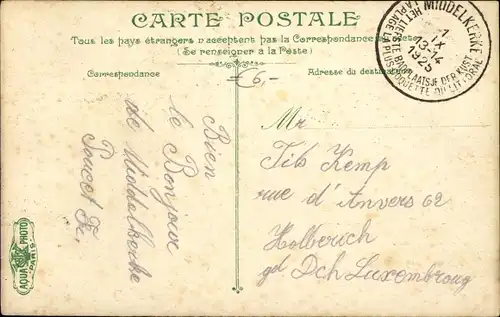 CARTE POSTALE
Tous les pays étrangers n'acceptent pas la Correspondance au
(Se renseigner à la Poste)
Correspondance
€6,-
Adresse du
MIDDELKERKE
1
IX
13-14
1925
HET LIEFSTE BADPLAATSJE DER KUST
LA PLAGE LA PLUS COQUETTE DU LITTORAL
Bien
le Bonjour
de Middelkerke
Mr
Tib Kemp
rue d'Anvers 62
Hollerich
gd Dch Luxembroug
AQUA PHOTO
PARIS